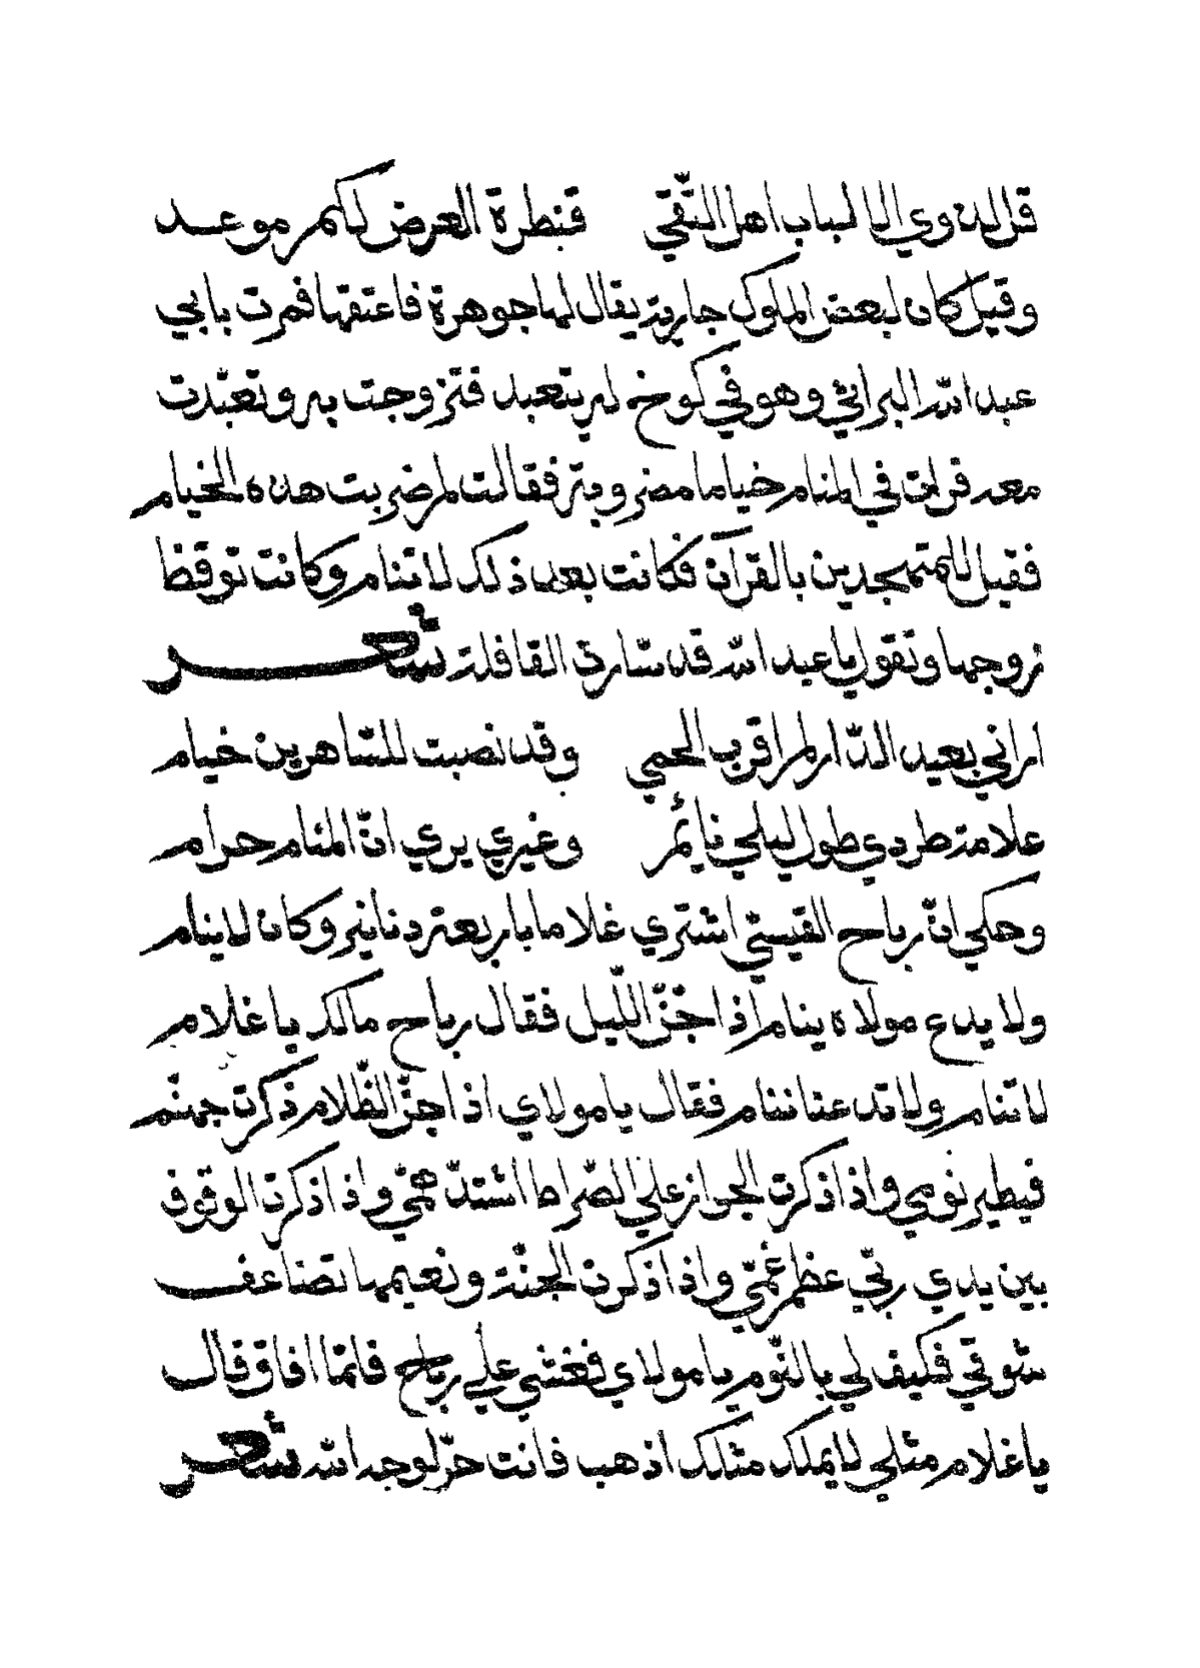 قل لذوي الالباب اهل التّقي قنطرة العرض لكم موعد
وقيل كان لبعض الملوك جارية يقال لها جوهرة فاعتقتها فمرت بابي
عبد الله البراثي وهو في كوخ له يتعبد فتزوجت به وتعبّدت
معه فرات في المنام خياما مضروبة فقالت لم ضربت هذه الخيام
فقيل للمتهجدين بالقرآن فكانت بعد ذلك لا تنام وكانت توقظ
زوجها وتقول يا عبد الله قد سارت القافلة شعر
اراني بعيد الدّار لم اقرب الحمي وقد نصبت للسّاهرين خيام
علامة طردي طول ليلي نائم وغيري يري انّ المنام حرام
وحكي انّ رباح القيسي اشتري غلاما باربعة دنانير وكان لا ينام
ولا يدع مولاه ينام اذا جنّ اللّيل فقال رباح مالك يا غلام
لا تنام ولا تدعنا ننام فقال يا مولاي اذا جنّ الظّلام ذكرت جهنّم
فيطير نومي واذا ذكرت الجواز علي الصّراط اشتدّ همّي واذا ذكرت الوقوف
بين يدي ربّي عظم غمّي واذا ذكرت الجنّة ونعيمها تضاعف
شوقي فكيف لي بالنّوم يا مولاي فغشي علي رباح فلمّا افاق قال
يا غلام مثلي لا يملك مثلك اذهب فانت حرّ لوجه الله شعر